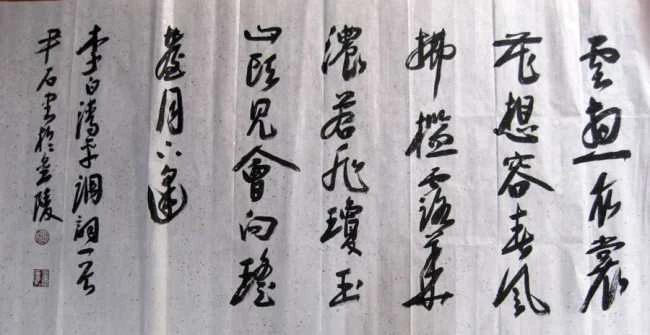 雲想衣裳
花想容春風
拂檻露華
濃若非瓊玉
山頭見會向瑤
臺月下逢
李白清平調詞一首
尹石書於金陵